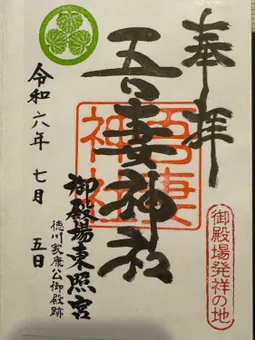 奉拝
吾妻神社
吾妻
神社
御殿場発祥の地
御殿場東照宮
徳川家康公御殿跡
令和六年 七月 五日